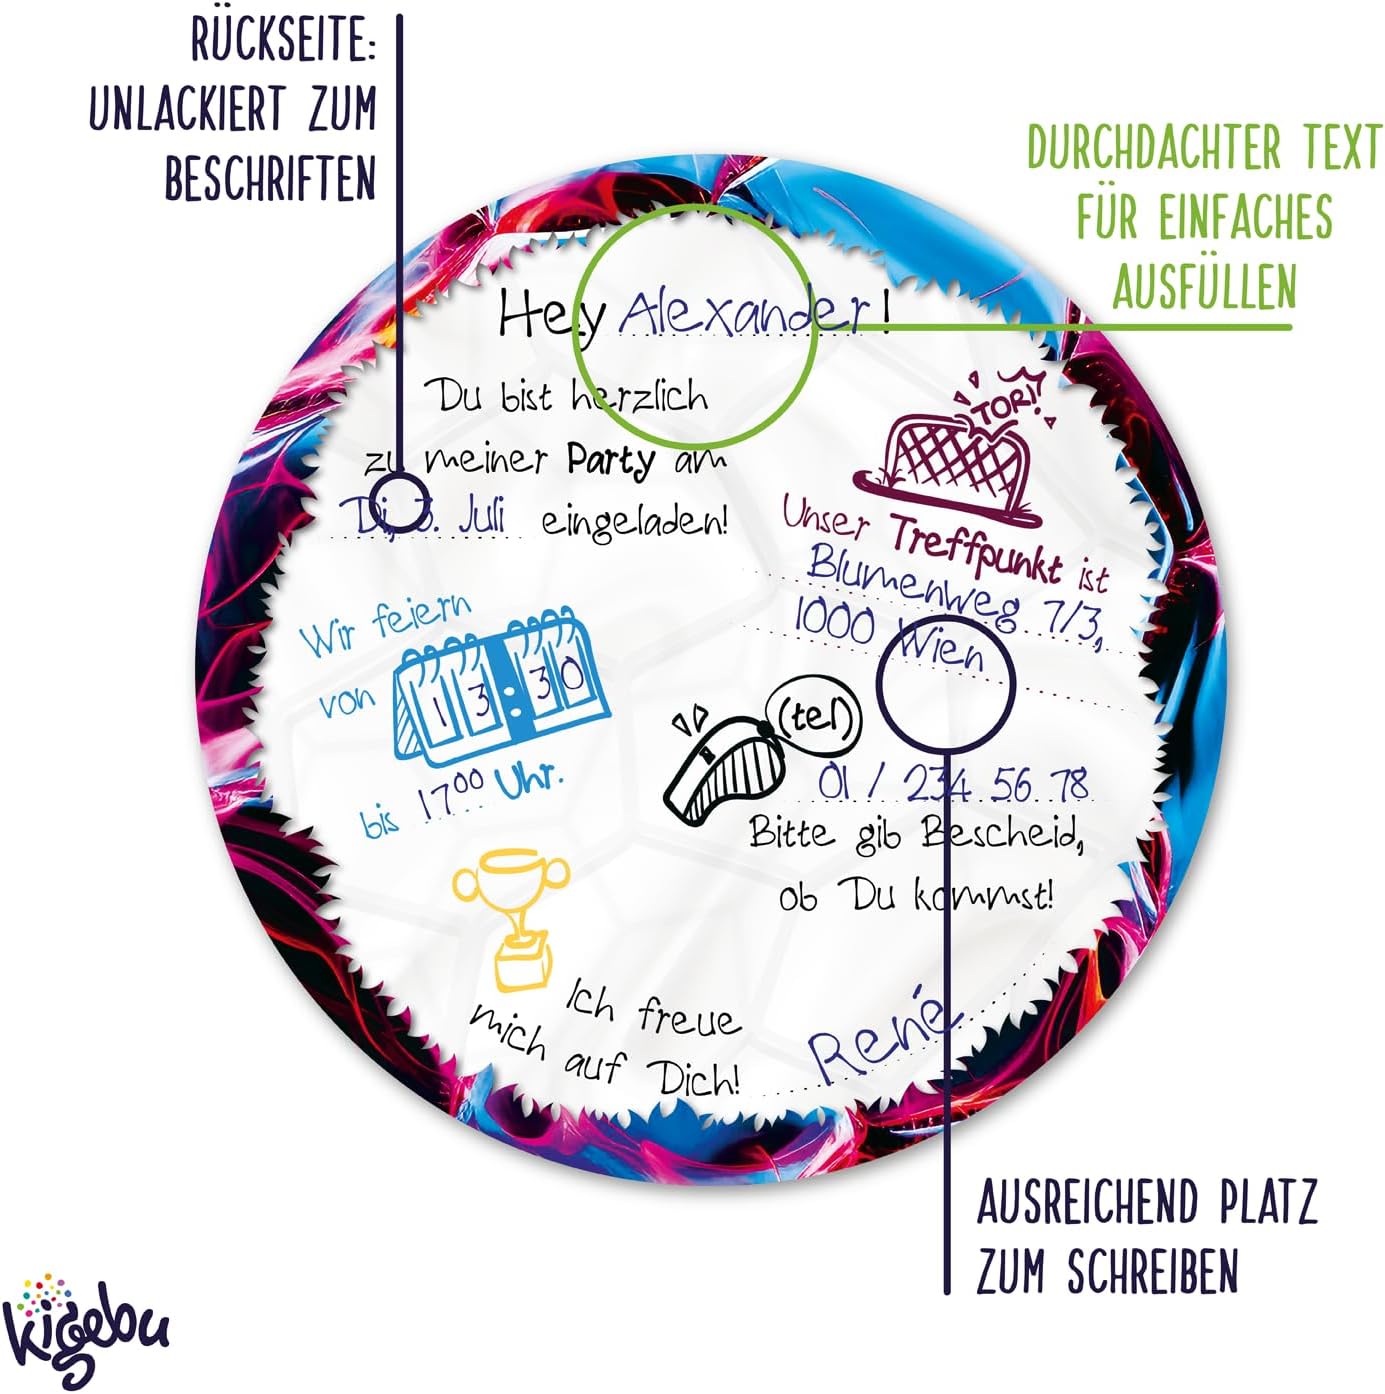 RÜCKSEITE:
UNLACKIERT ZUM
BESCHRIFTEN
DURCHDACHTER TEXT
FÜR EINFACHES
AUSFÜLLEN
Hey Alexander!
Du bist herzlich
zu meiner Party am
Di, 3. Juli eingeladen!
TOR!
Unser Treffpunkt ist
Blumenweg 7/3,
1000 Wien
Wir feiern
von 13:30
bis 17⁰⁰ Uhr.
(tel)
01 / 234 56 78
Bitte gib Bescheid,
ob Du kommst!
Ich freue
mich auf Dich!
René
AUSREICHEND PLATZ
ZUM SCHREIBEN
kigebu